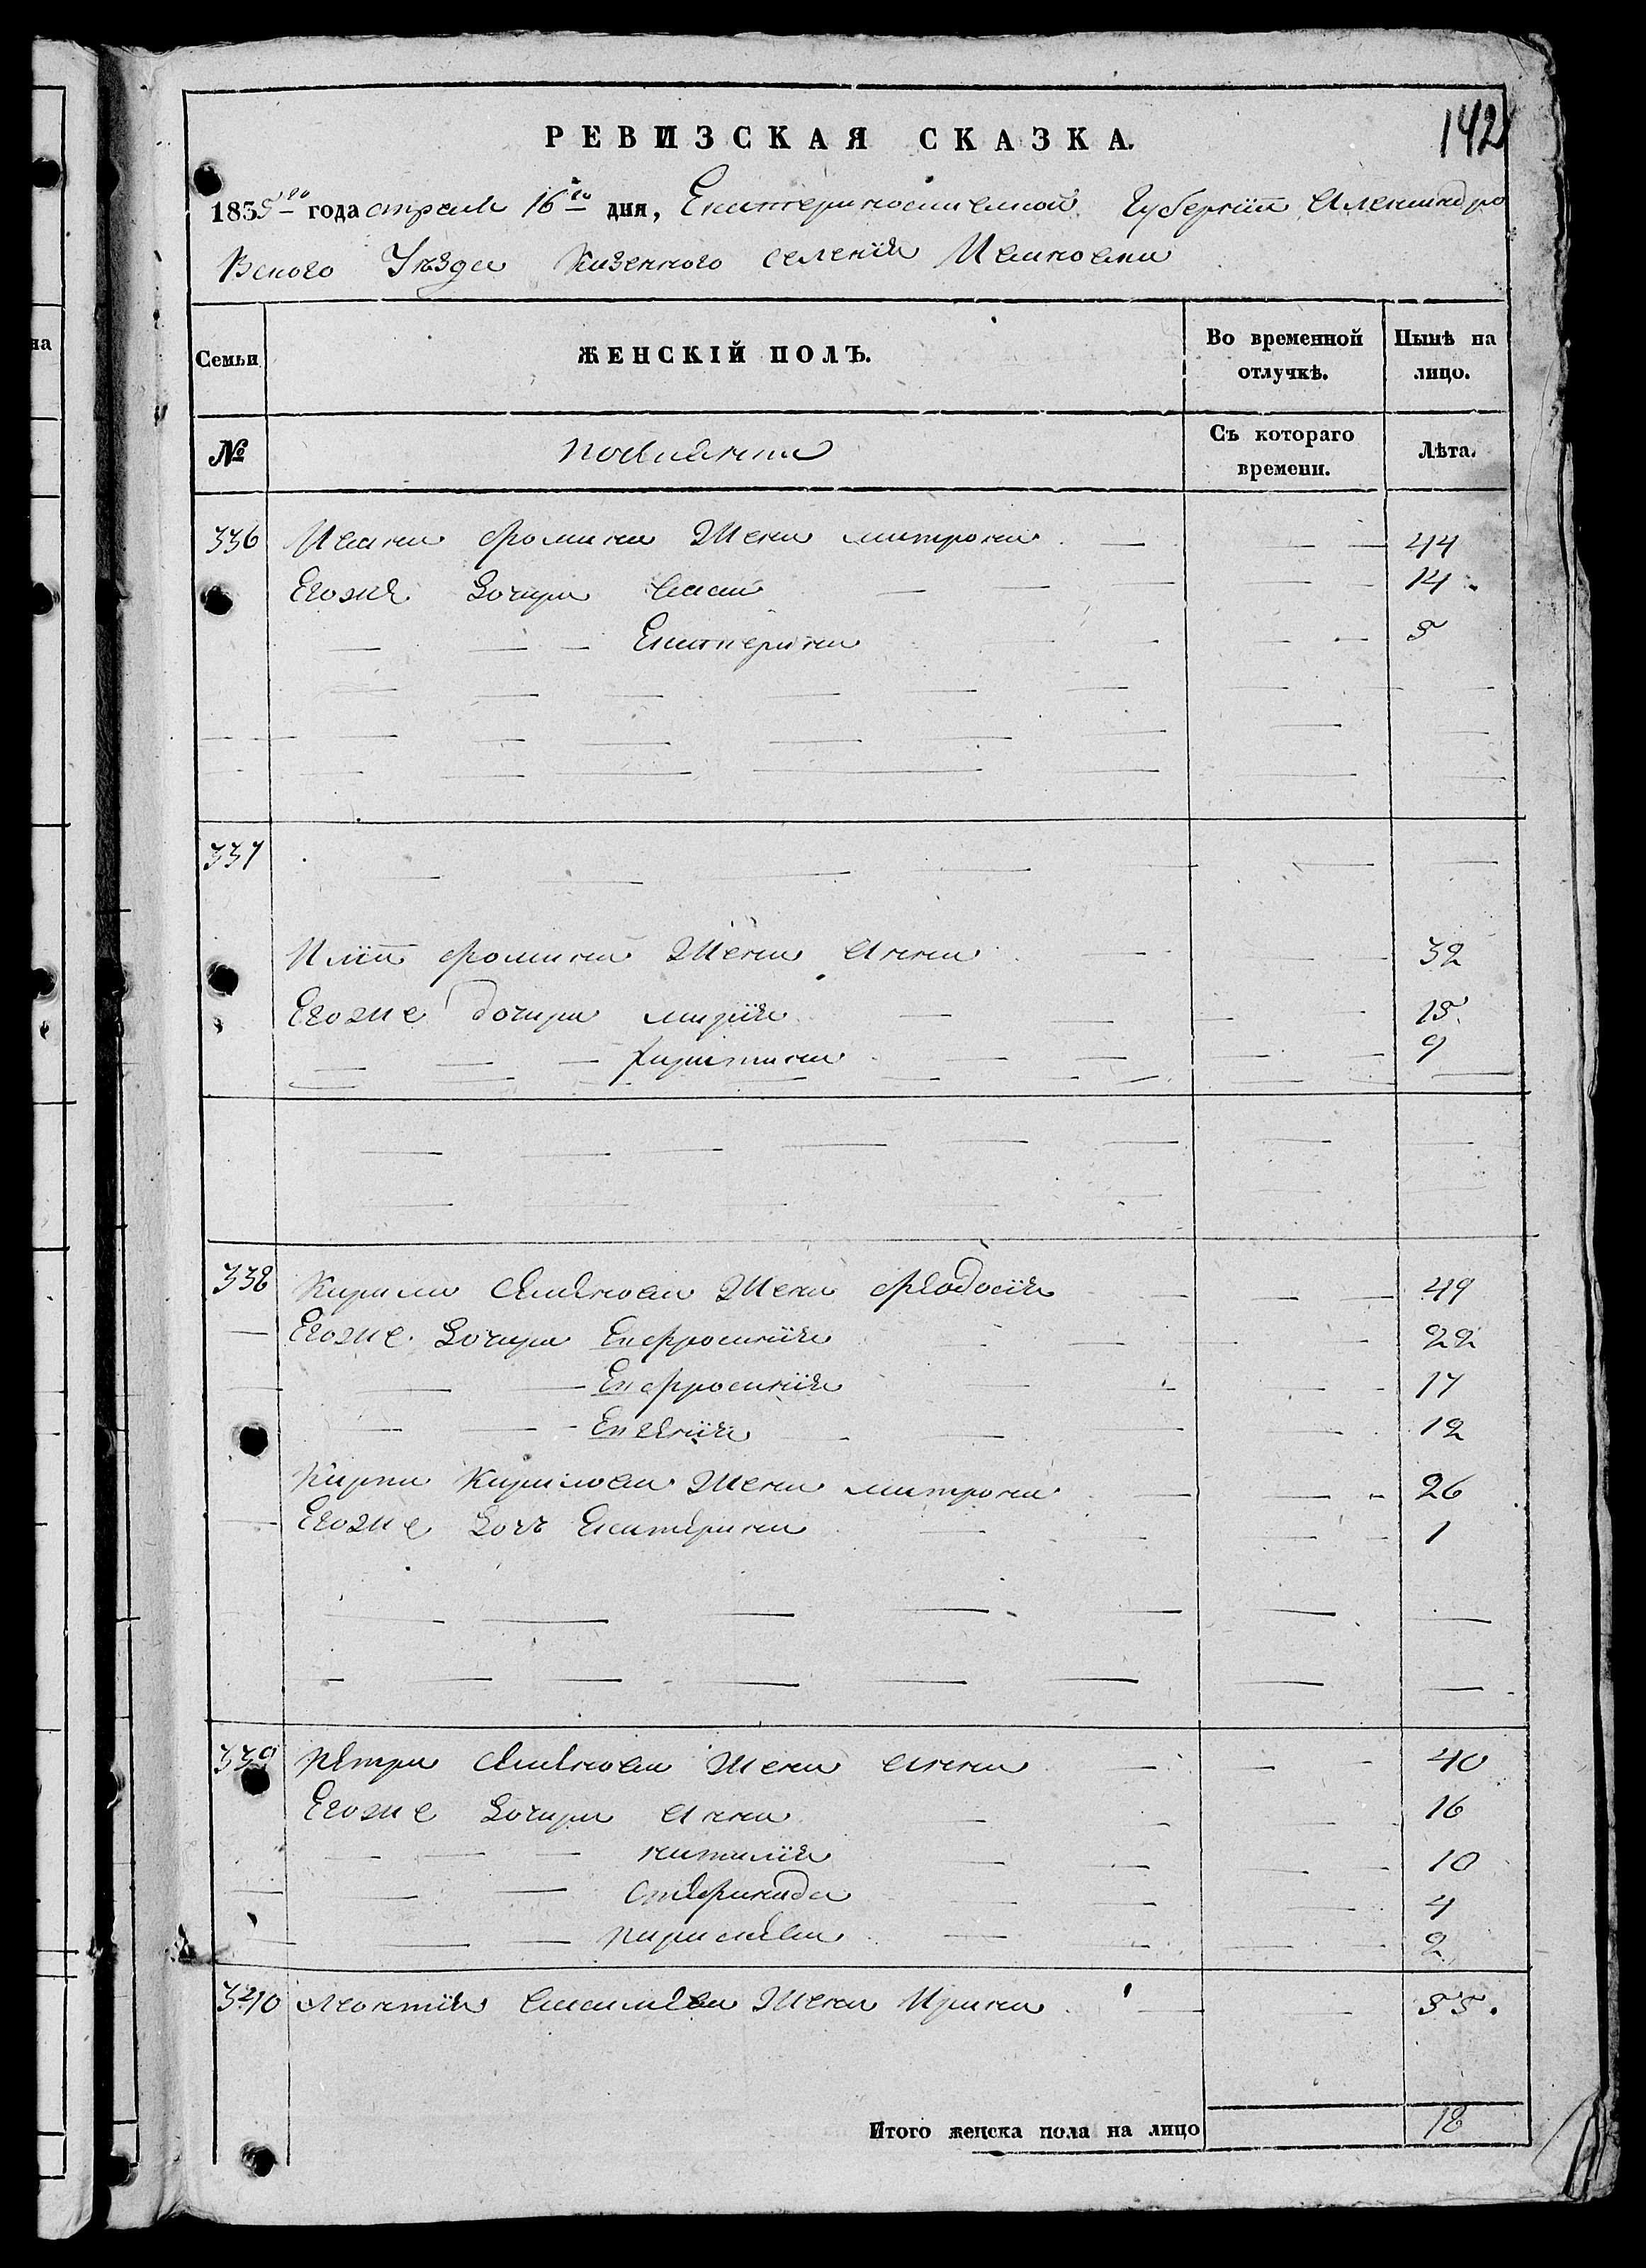 142
РЕВИЗСКАЯ СКАЗКА.
1835го года апреля 16го дня, Екатеринославской Губернии Александро
вского Уезда Казенного селения Ивановки
Семьи
ЖЕНСКІЙ ПОЛЪ.
Во временной отлучкѣ.
Нынѣ на лицо.
№
поселянки
Съ котораго времени.
Лѣта.
336 Ивана Фомина Жена матрона — — — 44
Егоже Дочери — — — 14
— — — Екатерина — — — 5
337
Илїи Фомина Жена Анна — — — 32
Егоже дочери марїя — — — 15
— — — Христина — — — 9
338 Кирила Семенова Жена Феодосїя — — — 49
— Егоже Дочери Ефросинїя — — — 22
— — — Ефросинїя — — — 17
— — — Евгенїя — — — 12
Карпа Кирилова Жена матрона — — — 26
— Егоже Дочь Екатерина — — — 1
339 Петра Семенова Жена Анна — — — 40
Егоже Дочери Анна — — — 16
— — — наталїя — — — 10
— — — Степанида — — — 4
— — — параскева — — — 2
340 Леонтїя Васильева Жена Ирина — — 55.
Итого женска пола на лицо 18